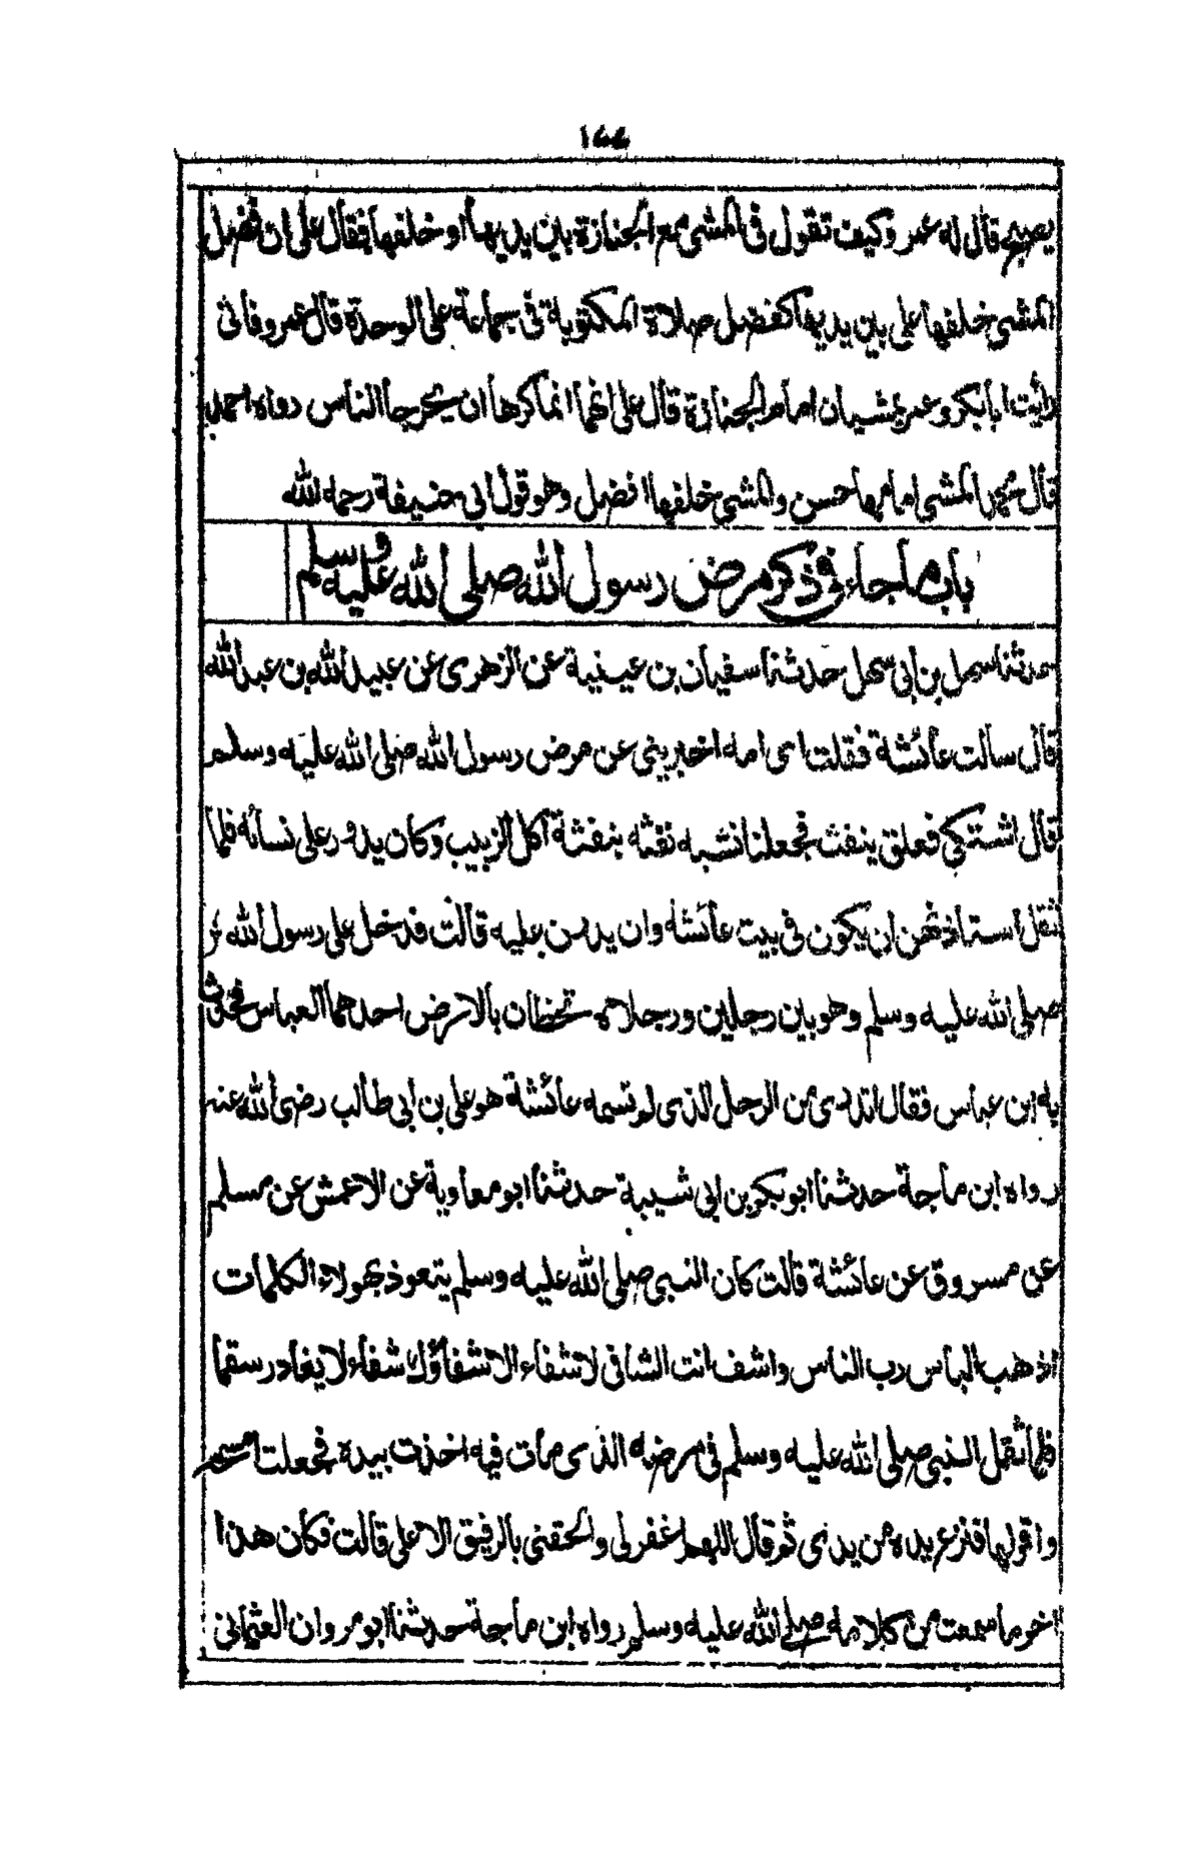 ١٧٧
يصبح قال له عمرو كيف تقول في المشي مع الجنازة بين يديها أو خلفها فقال علي ان فضل
المشي خلفها على بين يديها كفضل صلاة المكتوبة في جماعة على الوحدة قال عمرو فاني
رأيت ابا بكر وعمر يمشيان امام الجنازة قال علي انهما انما كرها ان يحرجا الناس رواه احمد
قال محمد المشي امامها حسن والمشي خلفها افضل وهو قول أبي حنيفة رحمه الله
باب ما جاء في ذكر مرض رسول الله صلى الله عليه وسلم
حدثنا سهل بن أبي سهل حدثنا سفيان بن عيينة عن الزهري عن عبيد الله بن عبد الله
قال سألت عائشة فقلت اى امه اخبريني عن مرض رسول الله صلى الله عليه وسلم
قال اشتكى فعلق ينفث فجعلنا نشبه نفثه بنفثة آكل الزبيب وكان يدور على نسائه فلما
ثقل استأذنهن ان يكون في بيت عائشة وان يدرن عليه قالت فدخل علي رسول الله
صلى الله عليه وسلم وهو بين رجلين ورجلاه تخطان بالارض احدهما العباس فحدثت
به ابن عباس فقال اتدري من الرجل الذى لم تسمه عائشة هو علي بن ابي طالب رضي الله عنه
رواه ابن ماجة حدثنا ابو بكر بن ابي شيبة حدثنا ابو معاوية عن الاعمش عن مسلم
عن مسروق عن عائشة قالت كان النبي صلى الله عليه وسلم يتعوذ بهولاء الكلمات
اذهب الباس رب الناس واشف انت الشافي لا شفاء الا شفاؤك شفاء لا يغادر سقما
فلما ثقل النبي صلى الله عليه وسلم في مرضه الذى مات فيه اخذت بيده فجعلت امسحه
واقولها فنزع يده من يدى ثم قال اللهم اغفر لي والحقني بالرفيق الاعلى قالت فكان هذا
اخر ما سمعت من كلامه صلى الله عليه وسلم رواه ابن ماجة حدثنا ابو مروان العثماني